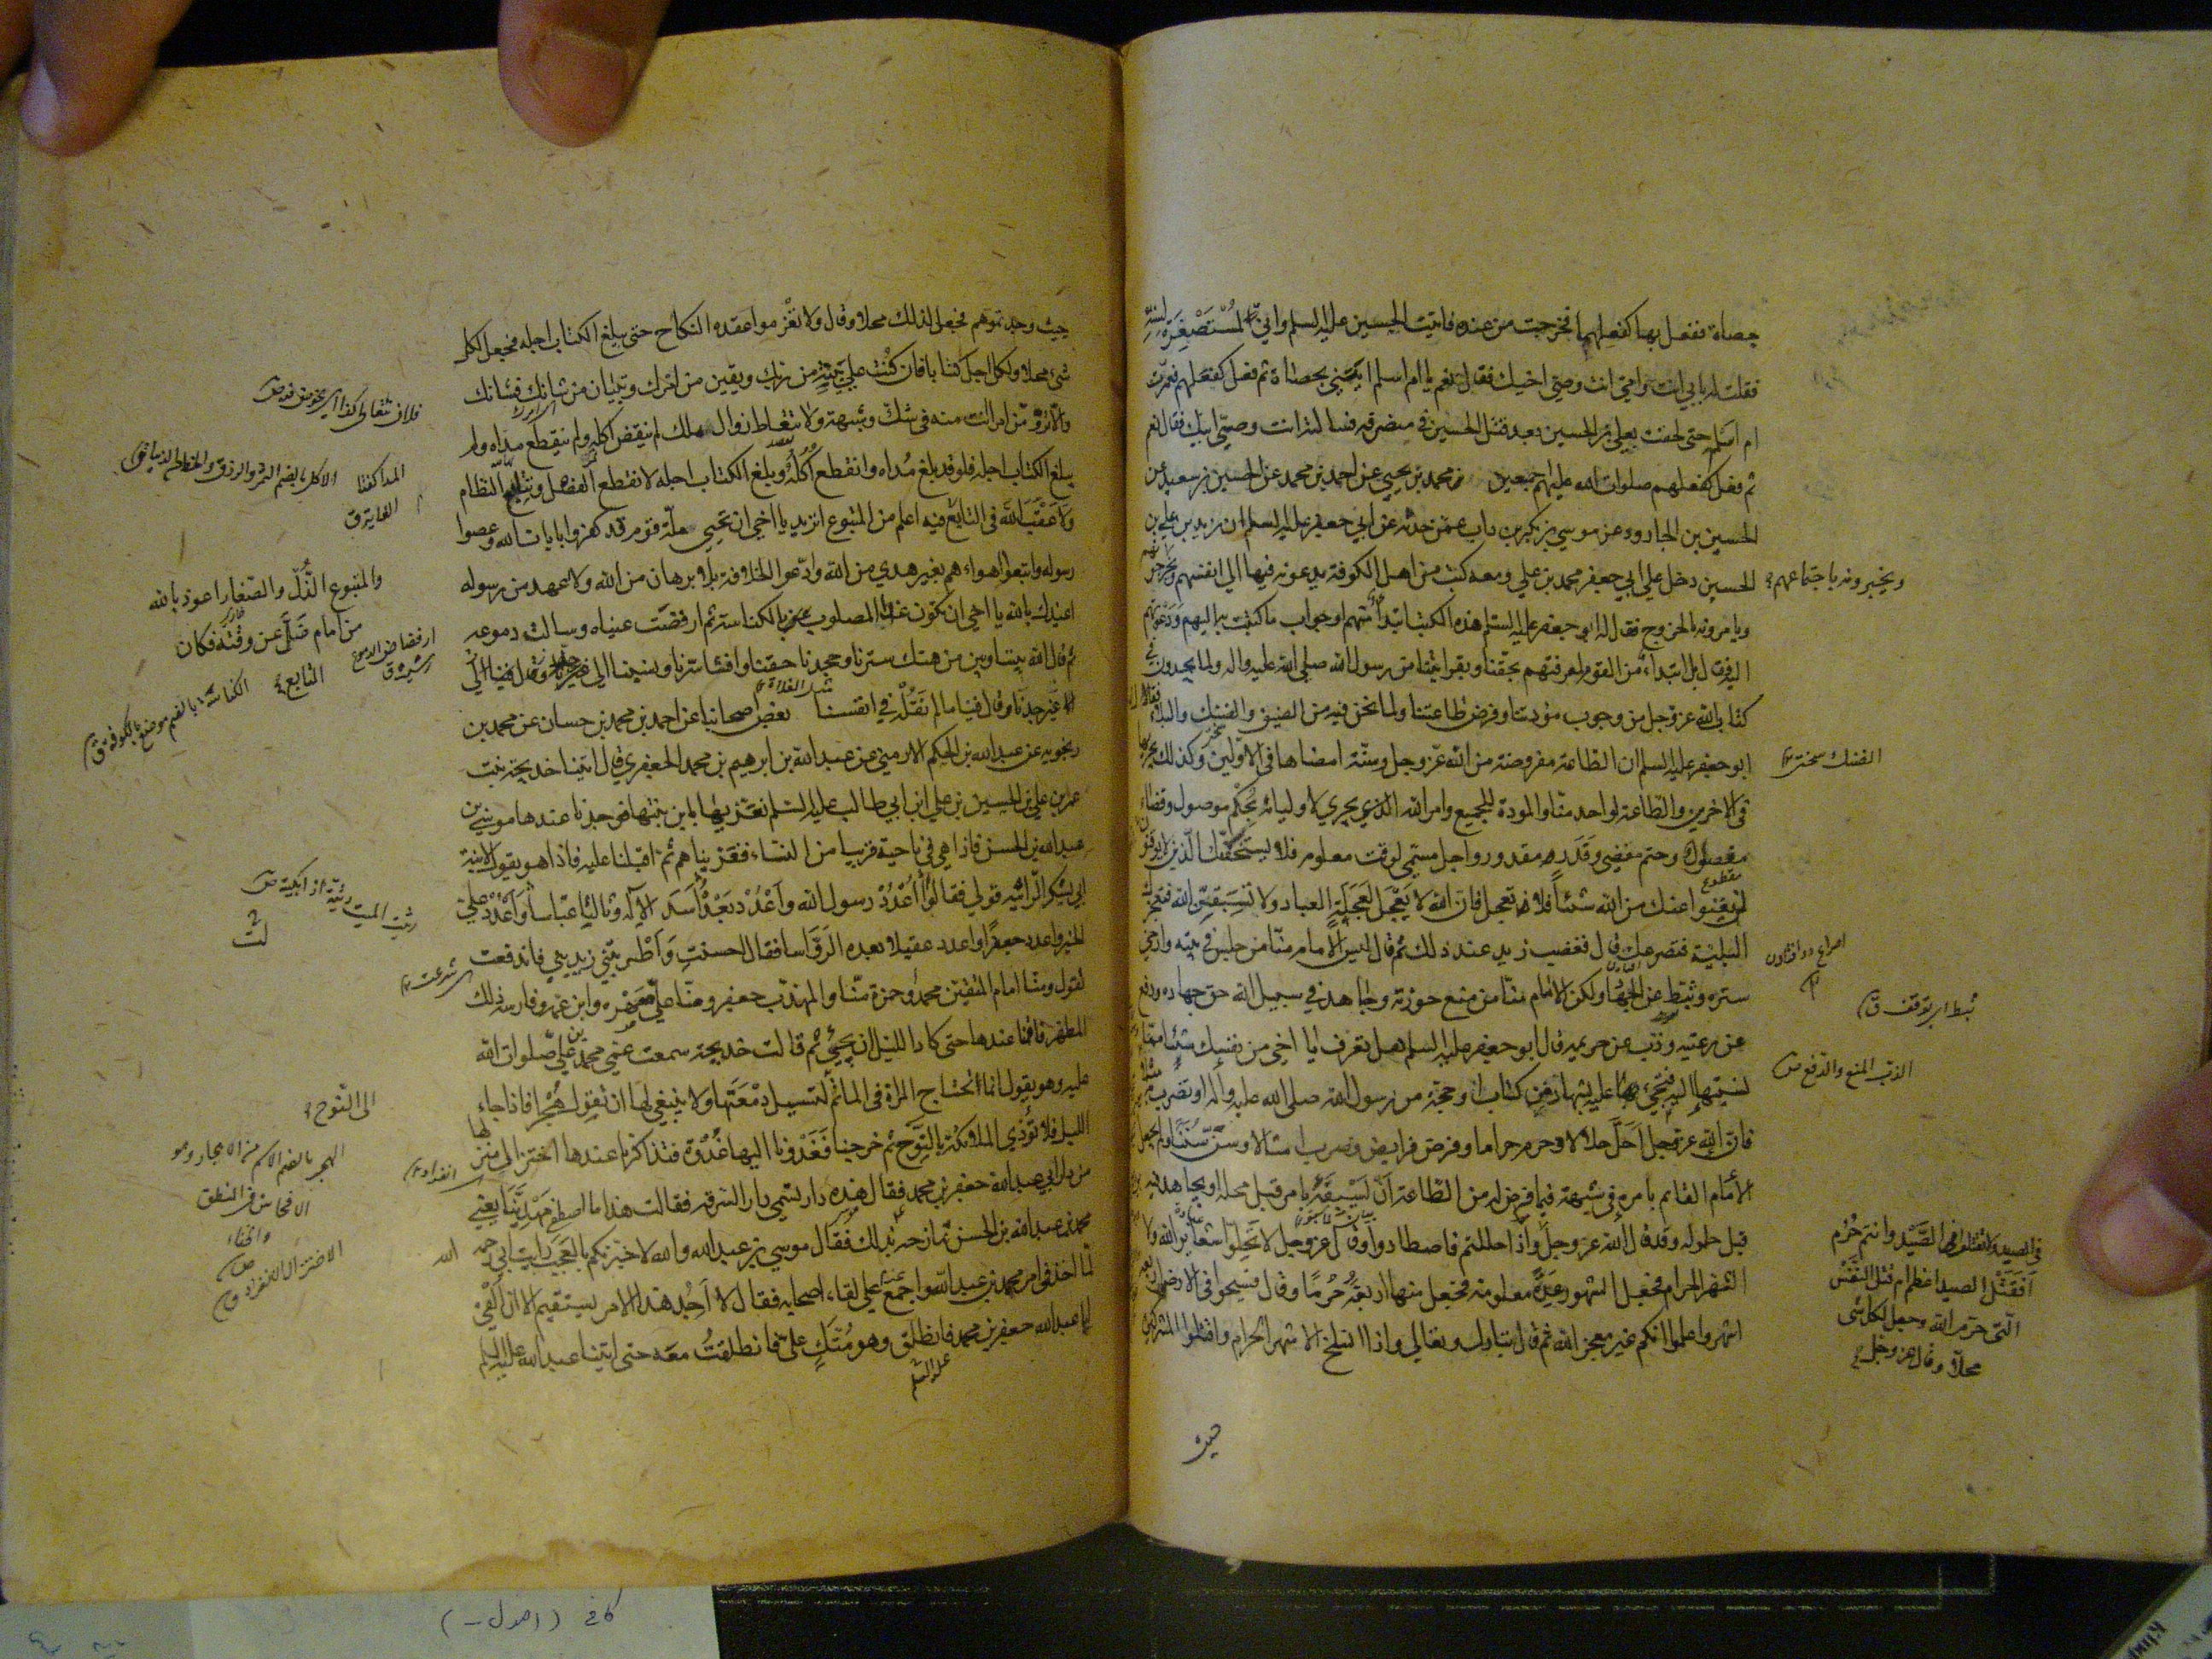 حصاة ففعل بها كفعلهما فخرجت من عنده فاتيت الحسين عليه السلم واني لمستصغرة لسنه
فقلت له بابي انت وامي انت وصي اخيك فقال نعم يا ام اسلم ايتيني بحصاة ثم فعل كفعلهم فعمرت
ام اسلم حتى لحقت بعلي بن الحسين بعد قتل الحسين في منصرفه فسالته انت وصي ابيك فقال نعم
ثم فعل كفعلهم صلوات الله عليهم اجمعين محمد بن يحيي عن احمد بن محمد عن الحسين بن سعيد عن
الحسين بن الجارود عن موسي بن بكر بن داب عمن حدثه عن ابي جعفر عليه السلم ان زيد بن علي بن
الحسين دخل علي ابي جعفر محمد بن علي ومعه كتب من اهل الكوفة يدعونه فيها الي انفسهم
ويخبرونه باجتماعهم
ويامرونه بالخروج فقال له ابو جعفر عليه السلم هذه الكتب ابتداء منهم او جواب ما كتبت به اليهم ودعوتهم
اليه فقال بل ابتداء من القوم لمعرفتهم بحقنا وبقرابتنا من رسول الله صلي الله عليه واله ولما يجدون في
كتاب الله عز وجل من وجوب مودتنا وفرض طاعتنا ولما نحن فيه من الضيق والضنك والبلاء
ابو جعفر عليه السلم ان الطاعة مفروضة من الله عز وجل وسنة امضاها في الاولين وكذلك يجريها
الضنك سختي
في الاخرين والطاعة لواحد منا والمودة للجميع وامر الله الذي يجري لاوليائه بحكم موصول وقضاء
مفصول وحتم مقضي وقدر مقدور واجل مسمي لوقت معلوم فلا يستخفنك الذين لا يوقنون
لن يغنوا عنك من الله شيئا فلا تعجل فان الله لا يعجل لعجلة العباد ولا تسبقن الله فتعجزك
البلية فتصرعك قال فغضب زيد عند ذلك ثم قال ليس الامام منا من جلس في بيته وارخي
ستره وثبط عن الجهاد ولكن الامام منا من منع حوزته وجاهد في سبيل الله حق جهاده ودفع
ثبط اي توقف ق
عن رعيته وذب عن حريمه قال ابو جعفر عليه السلم هل تعرف يا اخي من نفسك شيئا مما
الذب المنع والدفع ص
نسبتها اليه فتجئ عليه بشاهد من كتاب الله او حجة من رسول الله صلي الله عليه واله او تضرب به
فان الله عز وجل احل حلالا وحرم حراما وفرض فرايض وضرب امثالا وسن سننا ولم يجعل
الامام القائم بامره في شبهة فيما فرض له من الطاعة ان يسبقه بامر قبل محله او يجاهد فيه
قبل حلوله وقد قال الله عز وجل
في الصيد لا تقتلوا الصيد وانتم حرم
افقتل الصيد اعظم ام قتل النفس
التي حرم الله وجعل لكل شئ
محلا وقال عز وجل
واذا حللتم فاصطادوا وقال عز وجل لا تحلوا شعائر الله ولا
الشهر الحرام فجعل الشهور عدة معلومة فجعل منها اربعة حرما وقال فسيحوا في الارض اربعة
اشهر واعلموا انكم غير معجزي الله ثم قال تبارك وتعالي واذا انسلخ الاشهر الحرم واقتلوا المشركين
حيث
حيث وجدتموهم فجعل لذلك محلا وقال ولا تعزموا عقدة النكاح حتى يبلغ الكتاب اجله فجعل لكل
شئ محلا ولكل اجل كتابا فان كنت علي بينة من ربك ويقين من امرك وتبيان من شانك فشانك
والا ترومن امرا انت منه في شك وشبهة ولا تتعاط زوال ملك لم ينقض اكله ولم ينقطع مداه ولم
يبلغ الكتاب اجله فلو قد بلغ مداه وانقطع اكله وبلغ الكتاب اجله لانقطع الفصل وتتابع النظام
ولاعقب الله في التابع
والمتبوع الذل والصغار اعوذ بالله
من امام ضل عن وقته فكان
التابع
فيه اعلم من المتبوع اتريد يا اخي ان تحيي ملة قوم قد كفروا بايات الله وعصوا
رسوله واتبعوا اهواءهم بغير هدي من الله وادعوا الخلافة بلا برهان من الله ولا عهد من رسوله
اعيذك بالله يا اخي ان تكون غدا المصلوب بالكناسة ثم ارفضت عيناه وسالت دموعه
ثم قال الله بيننا وبين من هتك سترنا وجحدنا حقنا وافشا سرنا ونسبنا الي غير جدنا وقال فينا
ما لم نقله في انفسنا بعض اصحابنا عن احمد بن محمد بن حسان عن محمد بن
رنجويه عن عبد الله بن الحكم الارمني عن عبد الله بن ابرهيم بن محمد الجعفري قال اتينا خديجة بنت
عمر بن علي بن الحسين بن علي ابن ابي طالب عليه السلم نعزيها بابن بنتها فوجدنا عندها موسي بن
عبد الله بن الحسن فاذا هي في ناحية قريبا من النساء فعزيناهم ثم اقبلنا عليه فاذا هو يقول لابنة
ابي يشكر الراثية قولي فقالت اعدد رسول الله واعدد بعده اسد الاله وثالثا عباسا واعدد علي
الخير واعدد جعفرا واعدد عقيلا بعده الرواسا فقال احسنت واطربتني زيديني فاندفعت
تقول ومنا امام المتقين محمد وحمزة منا والمهذب جعفر ومنا علي صهره وابن عمه وفارسه ذاك
المطهر فاقمنا عندها حتى كاد الليل ان يجئ ثم قالت خديجة سمعت عمي محمد بن علي صلوات الله
عليه وهو يقول انما تحتاج المراة في الماتم
الى النوح
لتسيل دمعتها ولا ينبغي لها ان تقول هجرا فاذا جاء
الليل فلا تؤذي الملائكة بالنوح ثم خرجنا فغدونا اليها غدوة فتذاكرنا عندها اختزال منزلها
من دار ابي عبد الله جعفر بن محمد فقال هذه دار تسمي دار السرقة فقالت هذا ما اصطفي مهدينا يعني
محمد بن عبد الله بن الحسن تمازحه بذلك فقال موسي بن عبد الله والله لاخبرنكم بالعجب رايت ابي رحمه الله
لما اخذ في امر محمد بن عبد الله واجمع علي لقاء اصحابه فقال لا اجد هذا الامر يستقيم الا ان القي
ابا عبد الله جعفر بن محمد فانطلق وهو متك علي فانطلقت معه حتى اتينا ابا عبد الله عليه السلم
فلان يتعاطى كذا اي يخوض فيه ص
الهجر بالضم الاسم من الاهجار وهو
الافحاش في النطق
الاختزال الانفراد ق
كافى (اصول -)